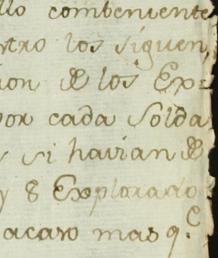 llo combeniente
ntro los siguen
ion de los Ex-
por cada Solda
si havian de
y 8 Explorado
acaso mas q.e